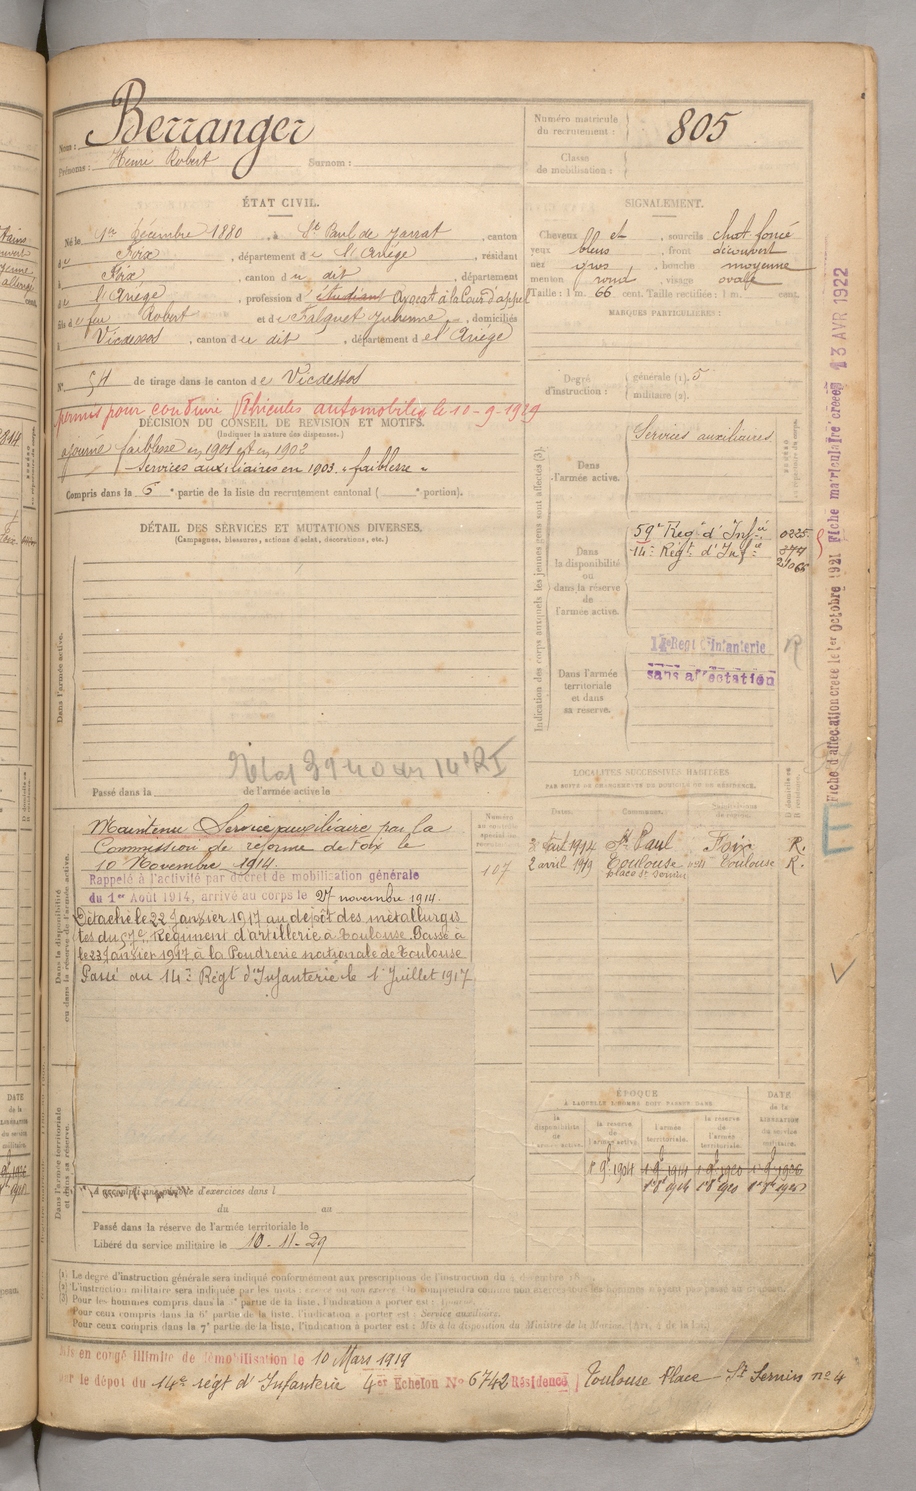 Nom : Berranger
Prénoms : Henri Robert Surnom :
Numéro matricule du recrutement : 805
Classe de mobilisation :
ÉTAT CIVIL.
Né le 1er Décembre 1880, à St Paul de Jarrat, canton
de Foix, département de l'Ariége, résidant
à Foix, canton du dit, département
de l'Ariége, profession d'étudiant Avocat à la Cour d'appel
fils de feu Robert et de Falguet Julienne, domiciliés
à Vicdessos, canton du dit, département de l'Ariége
SIGNALEMENT.
Cheveux et, sourcils chat. foncé
yeux bleus, front découvert
nez gros, bouche moyenne
menton rond, visage ovale
Taille : 1 m. 66 cent. Taille rectifiée : 1 m. cent.
MARQUES PARTICULIÈRES :
N° 54 de tirage dans le canton de Vicdessos
permis pour conduire Véhicules automobiles le 10-9-1929
DÉCISION DU CONSEIL DE REVISION ET MOTIFS.
(Indiquer la nature des dispenses.)
ajourné faiblesse en 1901 et en 1902
Services auxiliaires en 1903. « faiblesse »
Compris dans la 6e partie de la liste du recrutement cantonal ( e portion).
Degré d'instruction : générale (1). 5
militaire (2).
DÉTAIL DES SERVICES ET MUTATIONS DIVERSES.
(Campagnes, blessures, actions d'éclat, décorations, etc.)
Dans l'armée active.
Passé dans la de l'armée active le
Indication des corps auxquels les jeunes gens sont affectés (3).
Dans l'armée active.
Services auxiliaires
Dans la disponibilité ou dans la réserve de l'armée active.
59e Regt d'Infie 0225
14e Régt d'Infie
Dans l'armée territoriale et dans sa réserve.
14e Regt d'Infanterie R
sans affectation
Dans la disponibilité ou dans la réserve de l'armée active.
Maintenu Service auxiliaire par la
Commission de réforme de Foix le
10 Novembre 1914.
Rappelé à l'activité par décret de mobilisation générale
du 1er Août 1914, arrivé au corps le 27 novembre 1914.
Détaché le 22 Janvier 1917 au dépôt des métallurgis
tes du 57e Régiment d'artillerie à Toulouse. Passé à
le 23 Janvier 1917 à la Poudrerie nationale de Toulouse
Passé au 14e Régt d'Infanterie le 1er Juillet 1917
107
LOCALITÉS SUCCESSIVES HABITÉES
PAR SUITE DE CHANGEMENTS DE DOMICILE OU DE RÉSIDENCE.
Dates. Communes. Subdivisions de région. D domicile ou R résidence.
2 Août 1914 St Paul Foix R.
2 avril 1919 Toulouse Toulouse R.
place St Sernin
ÉPOQUE
À LAQUELLE L'HOMME DOIT PASSER DANS
la disponibilité de l'armée active. la réserve de l'armée active. l'armée territoriale. la réserve de l'armée territoriale. DATE de la LIBÉRATION du service militaire.
1er 9bre 1904 1er 9bre 1914 1er 9bre 1920 1er 9bre 1926
1er 8bre 1914 1er 8bre 1920
Dans l'armée territoriale et dans sa réserve.
A accompli une période d'exercices dans l
du au
Passé dans la réserve de l'armée territoriale le
Libéré du service militaire le 10-11-29
(1) Le degré d'instruction générale sera indiqué conformément aux prescriptions de l'instruction du
(3) Pour les hommes compris dans la partie de la liste, l'indication à porter est :
Pour ceux compris dans la 6e partie de la liste, l'indication à porter est : Service auxiliaire.
Pour ceux compris dans la 7e partie de la liste, l'indication à porter est : Mis à la disposition du Ministre de la Marine.
Mis en congé illimité de démobilisation le 10 Mars 1919
par le dépot du 14e régt d'Infanterie 4er Echelon No 6742 Résidence Toulouse Place St Sernin no 4
Fiche d'affectation créée le 1er Octobre 1921 Fiche matriculaire créée 13 AVR 1922